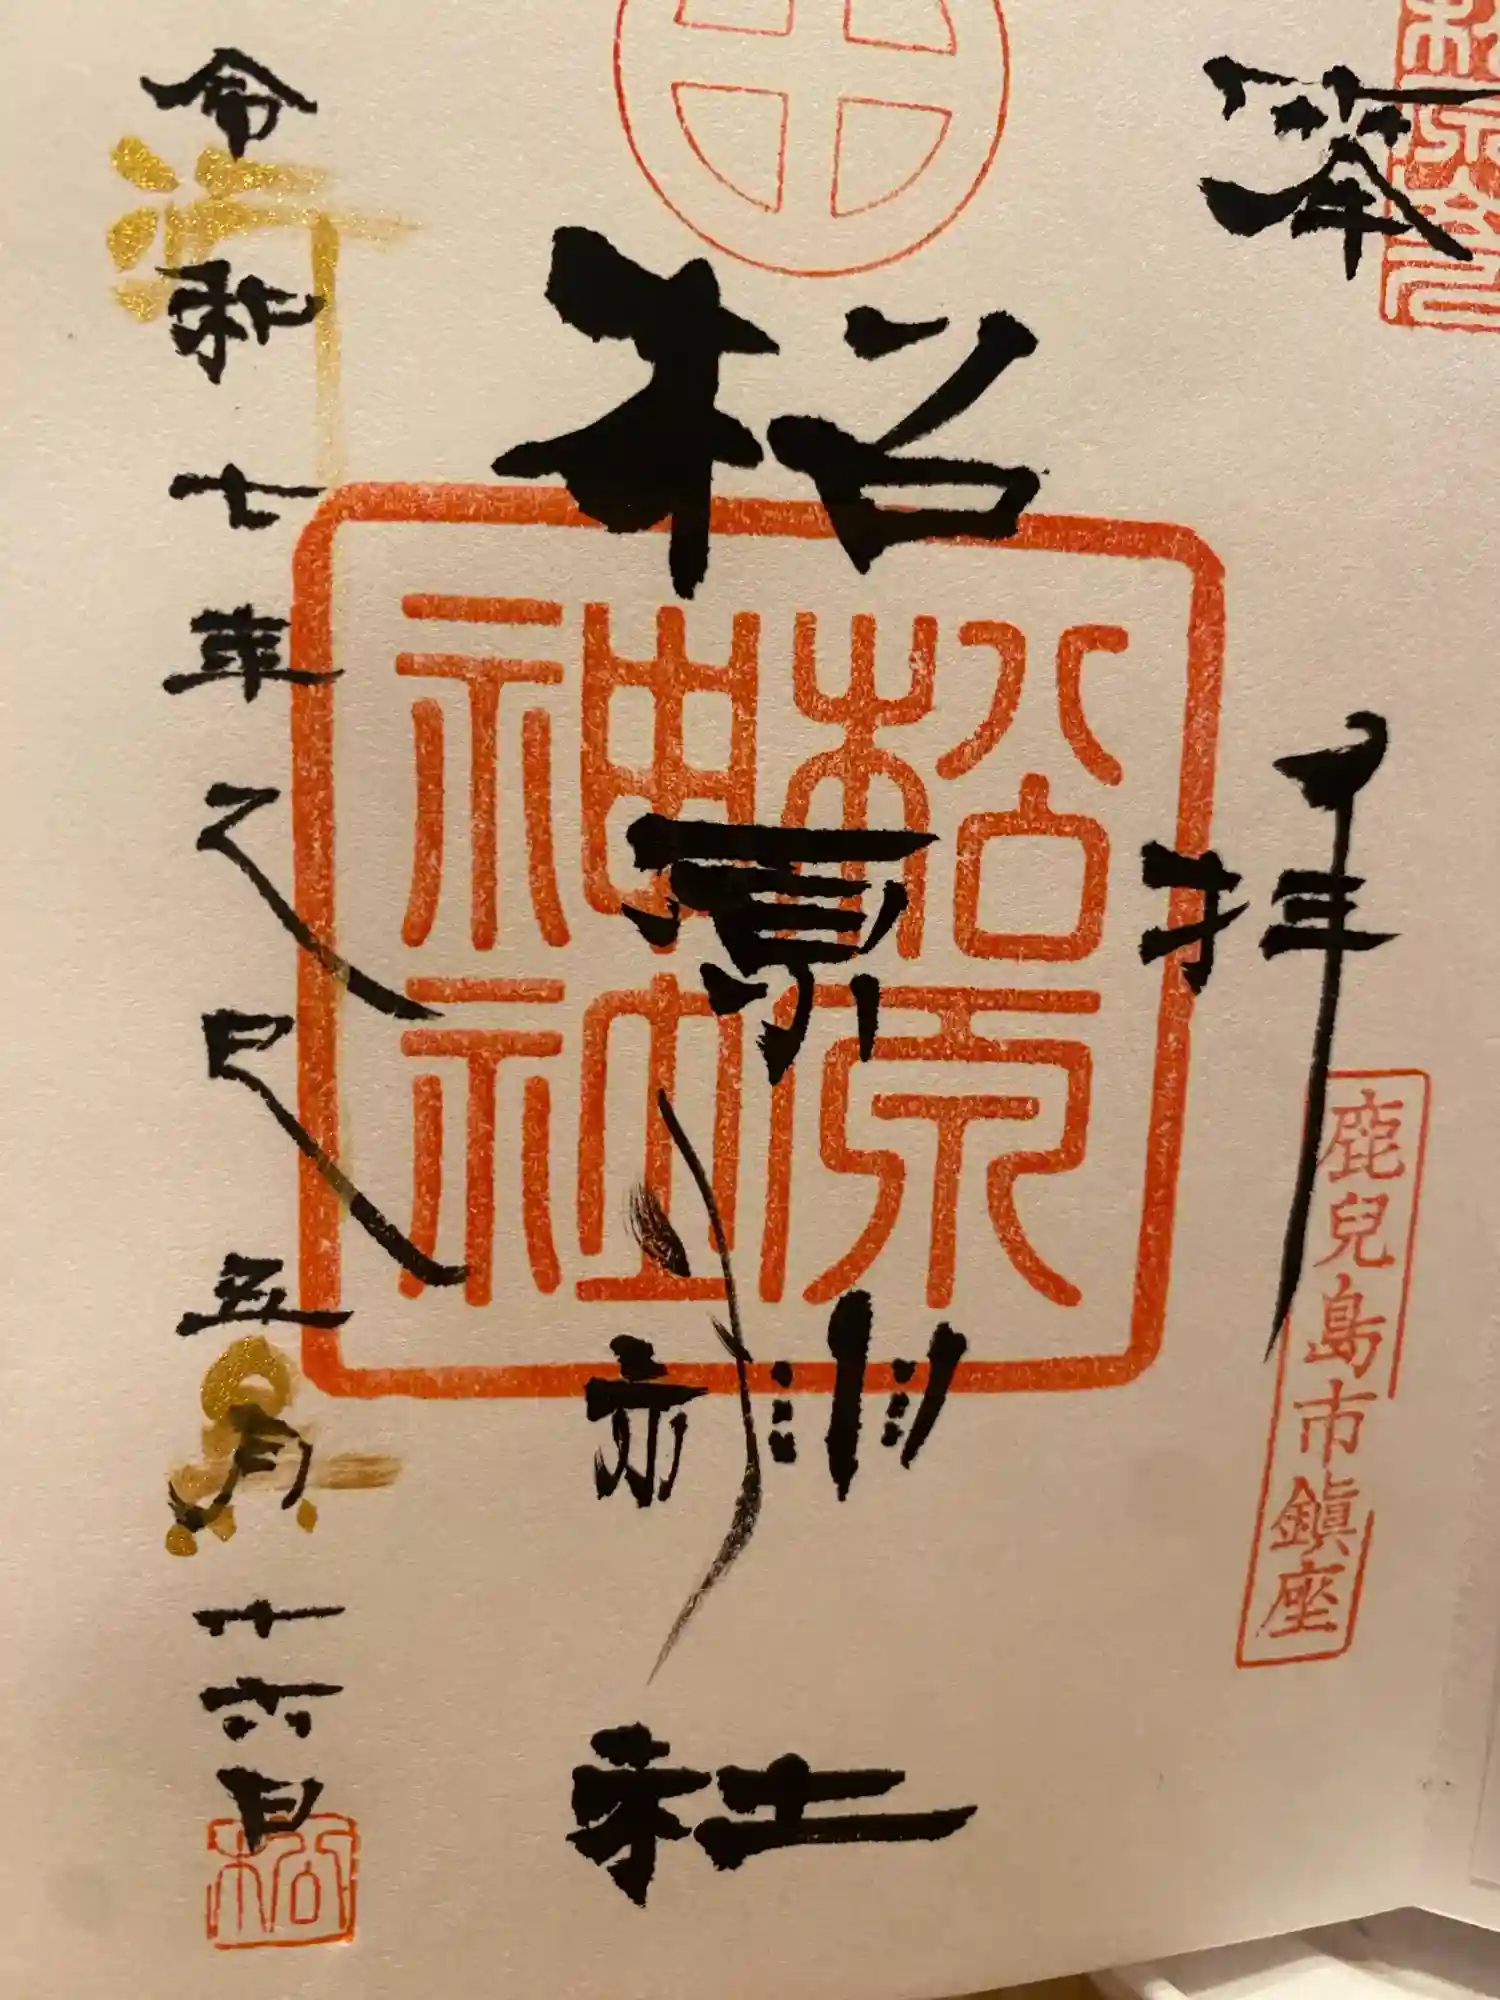 奉
拝
鹿兒島市鎮座
松原神社
松原
神社
令和七年乙巳五月十六日
松